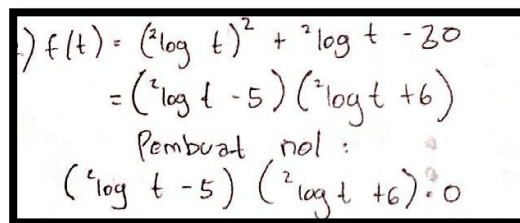 ) f(t) = (²log t)² + ²log t - 30
= (²log t - 5) (²log t + 6)
Pembuat nol :
(²log t - 5) (²log t + 6) = 0